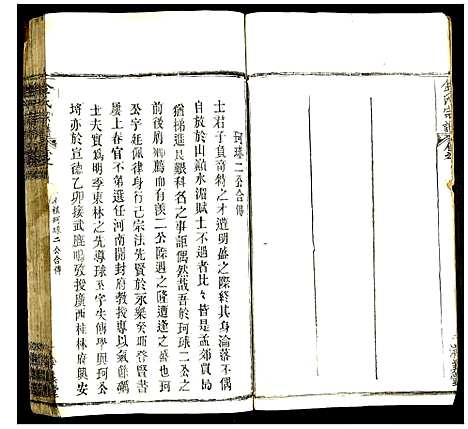 珂球二公合傳
士君子負奇特之才遭明盛之際終其身淪落不偶
自放於山巔水湄賦士不遇者比比皆是孟郊買島
猶梯進艮艱科名之事詎偶然哉吾於珂球二公之
前後皆膺鄉薦而有羨二公際遇之隆遭逢之盛也珂
公字廷佩律身行己宗法先賢於永樂癸卯登賢書
屢上春官不第選任河南開封府教授專以氣節礪
士夫實爲明季東林之先導球公字失傳學與珂公
埒亦於宣德乙卯接武鹿鳴敎授廣西桂林府興安
珂球二公合傳